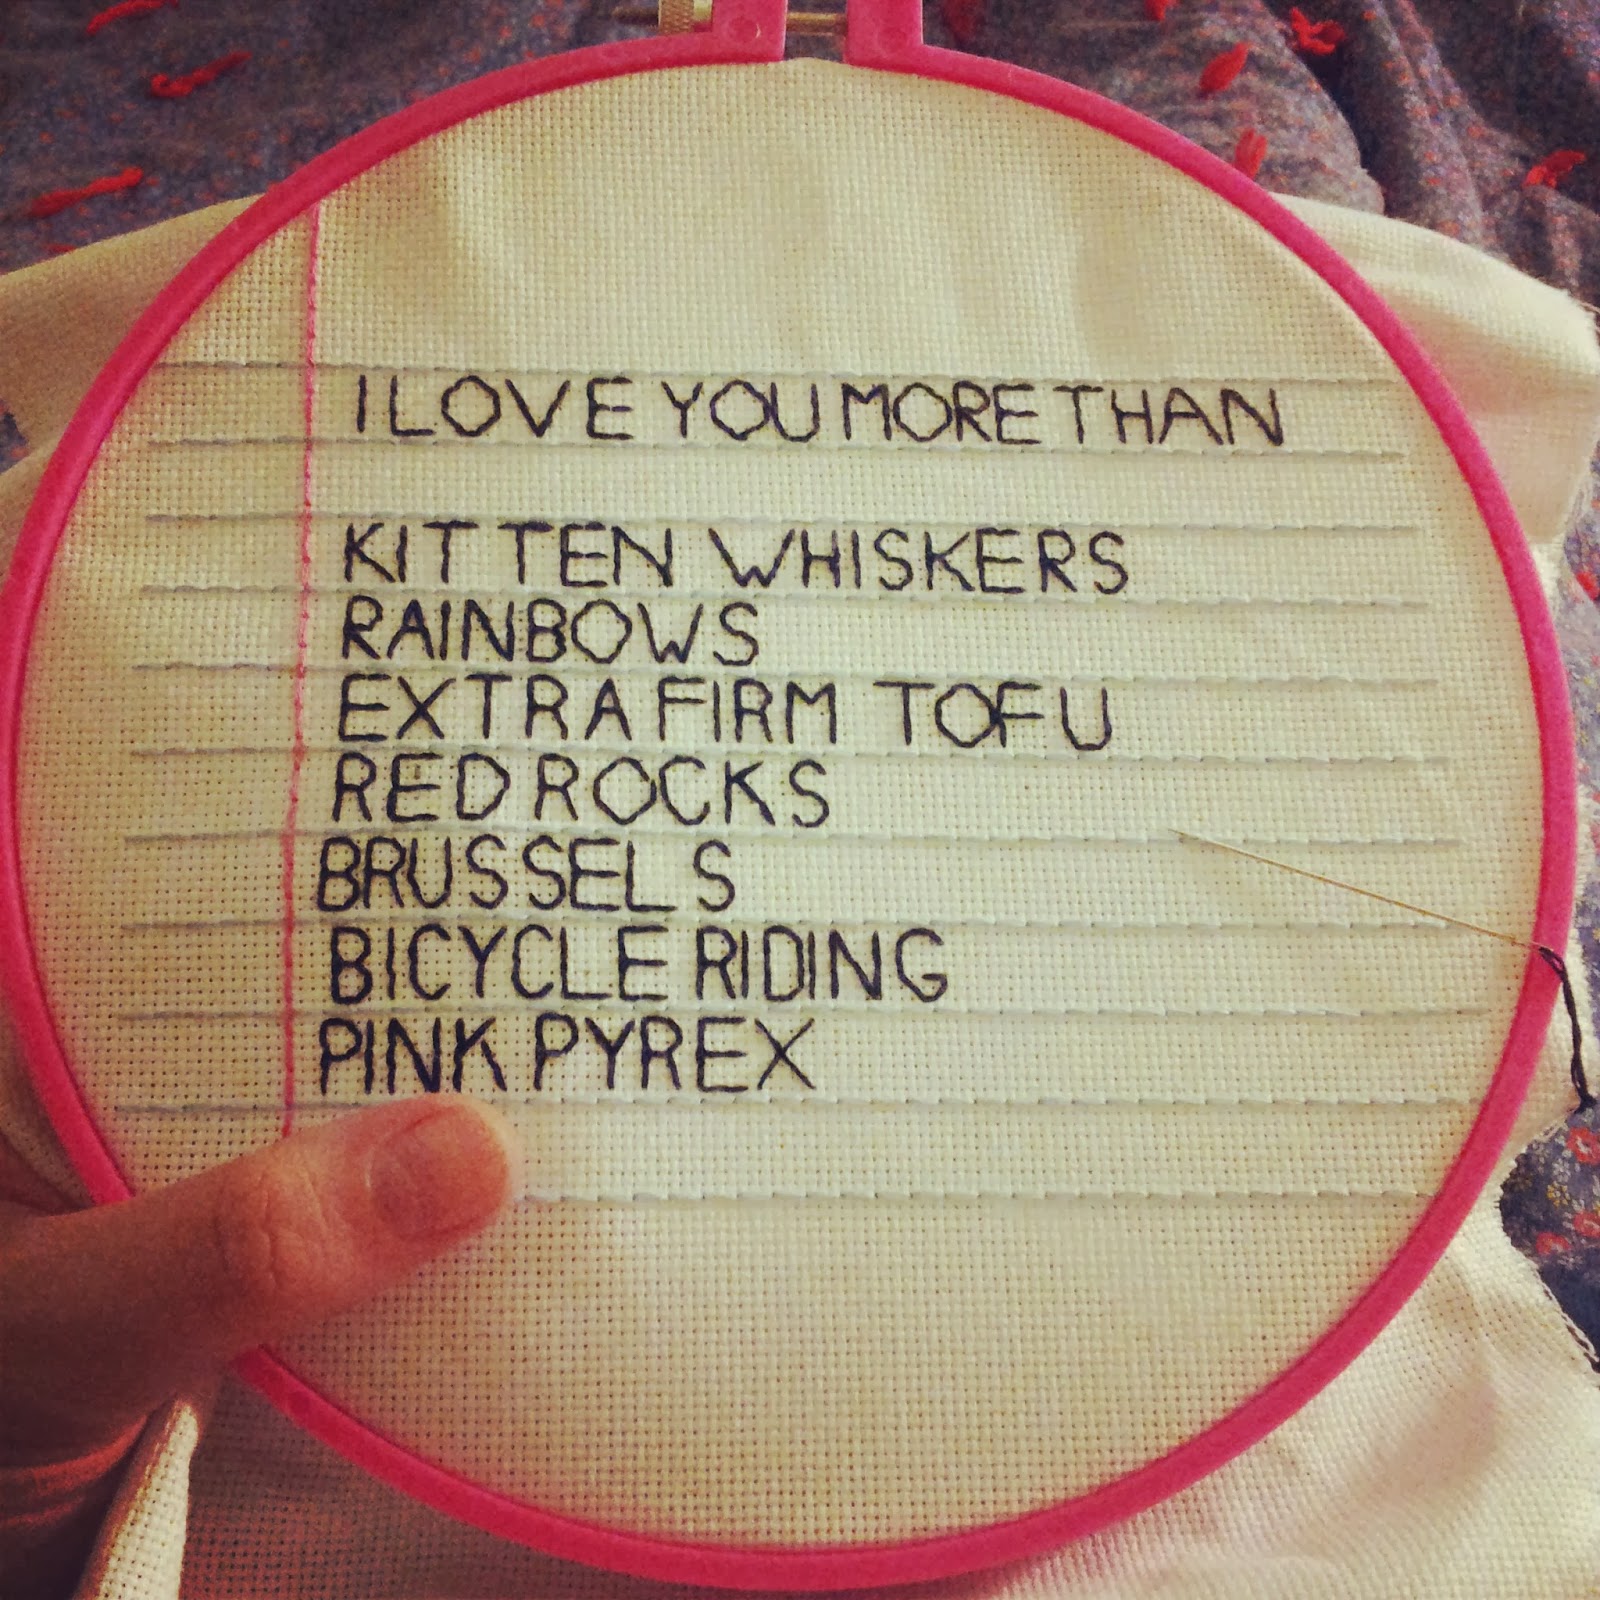 I LOVE YOU MORE THAN
KITTEN WHISKERS
RAINBOWS
EXTRA FIRM TOFU
RED ROCKS
BRUSSELS
BICYCLE RIDING
PINK PYREX